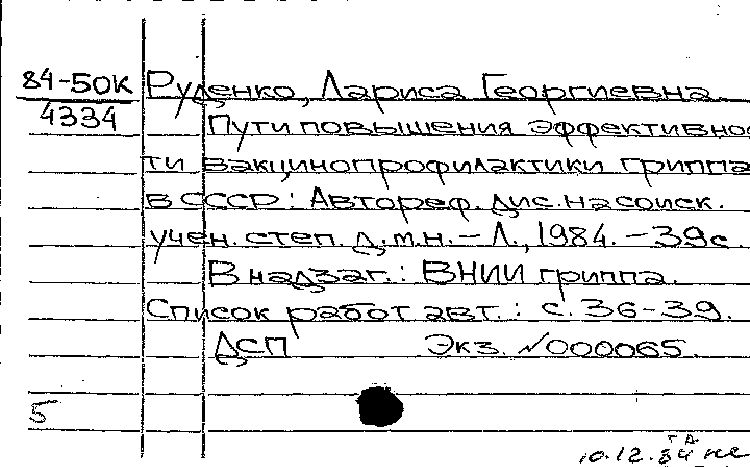 84-50К Руденко, Лариса Георгиевна.
4334 Пути повышения эффективнос
ти вакцинопрофилактики гриппа
в СССР: Автореф. дис. на соиск.
учен. степ. д.м.н. - Л., 1984. - 39с.
В надзаг.: ВНИИ гриппа.
Список работ авт.: с. 36-39.
ДСП Экз. №000065.
5
10.12.84